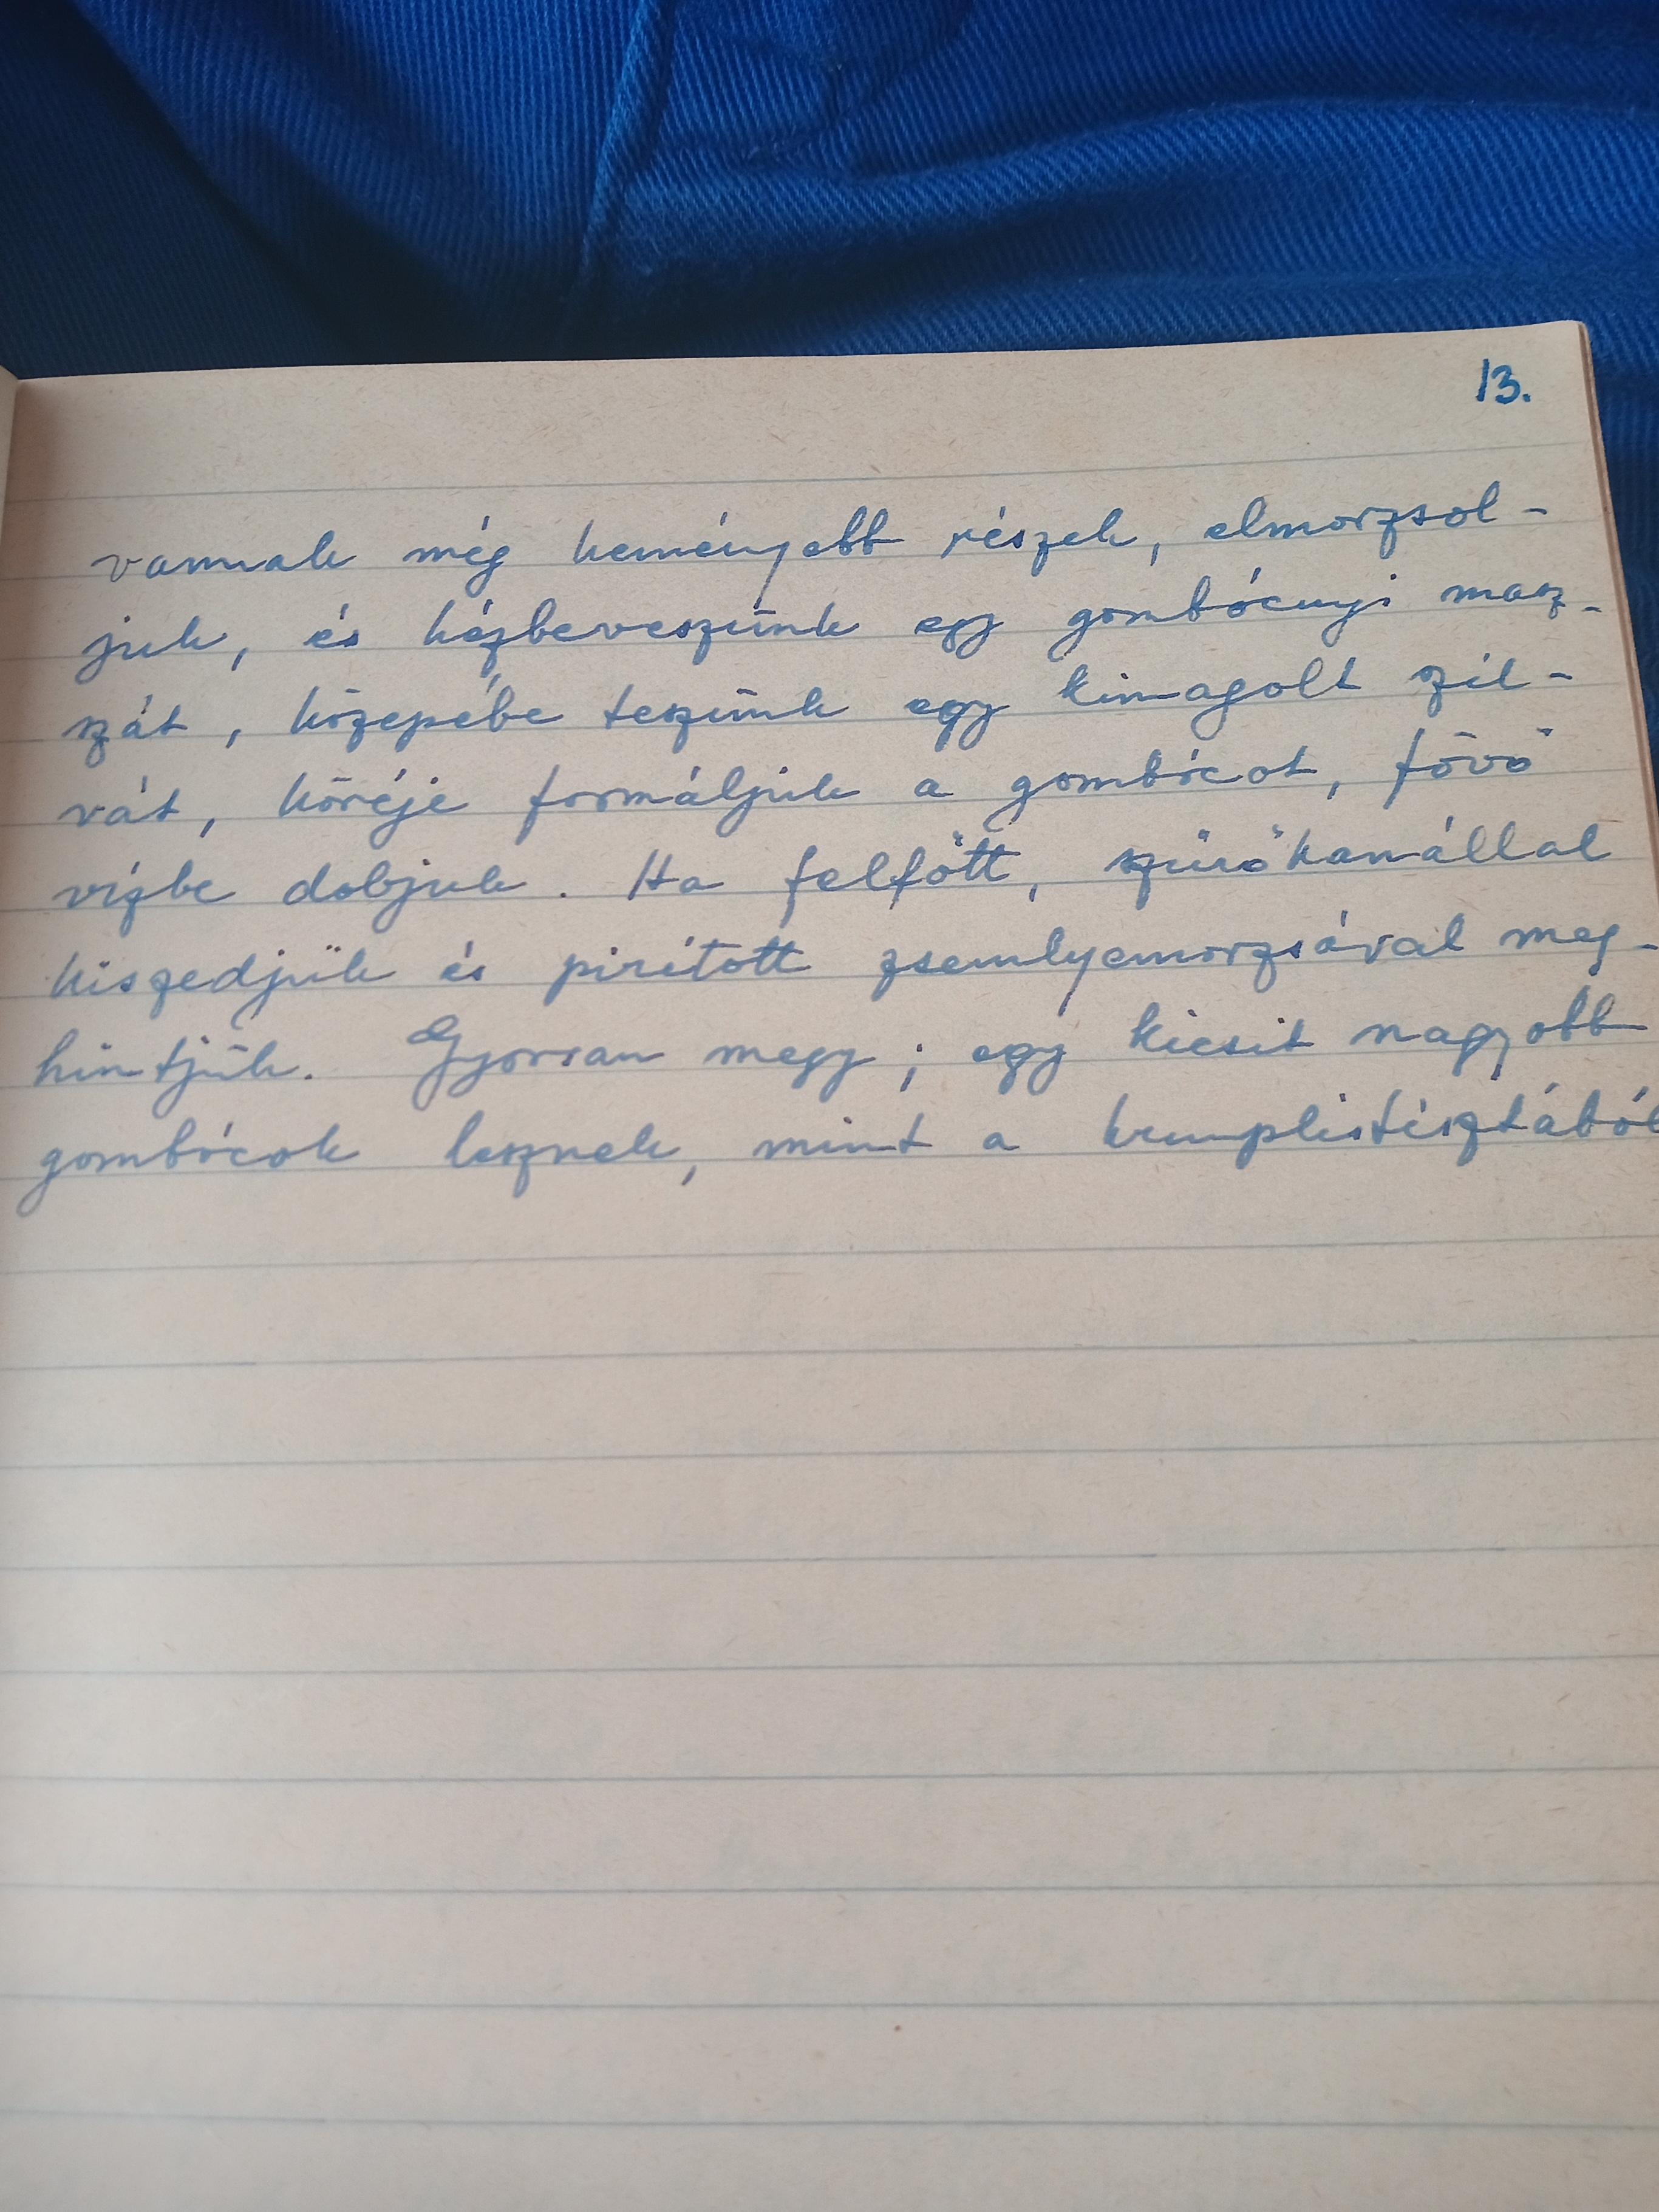 13.
vannak még keményebb részek, elmorzsol-
juk, és kézbeveszünk egy gombócnyi masz-
szát, közepébe teszünk egy kimagolt szil-
vát, köréje formáljuk a gombócot, fövő
vízbe dobjuk. Ha felfőtt, szűrőkanállal
kiszedjük és pirított zsemlyemorzsával meg-
hintjük. Gyorsan megy; egy kicsit nagyobb
gombócok lesznek, mint a krumplistésztából